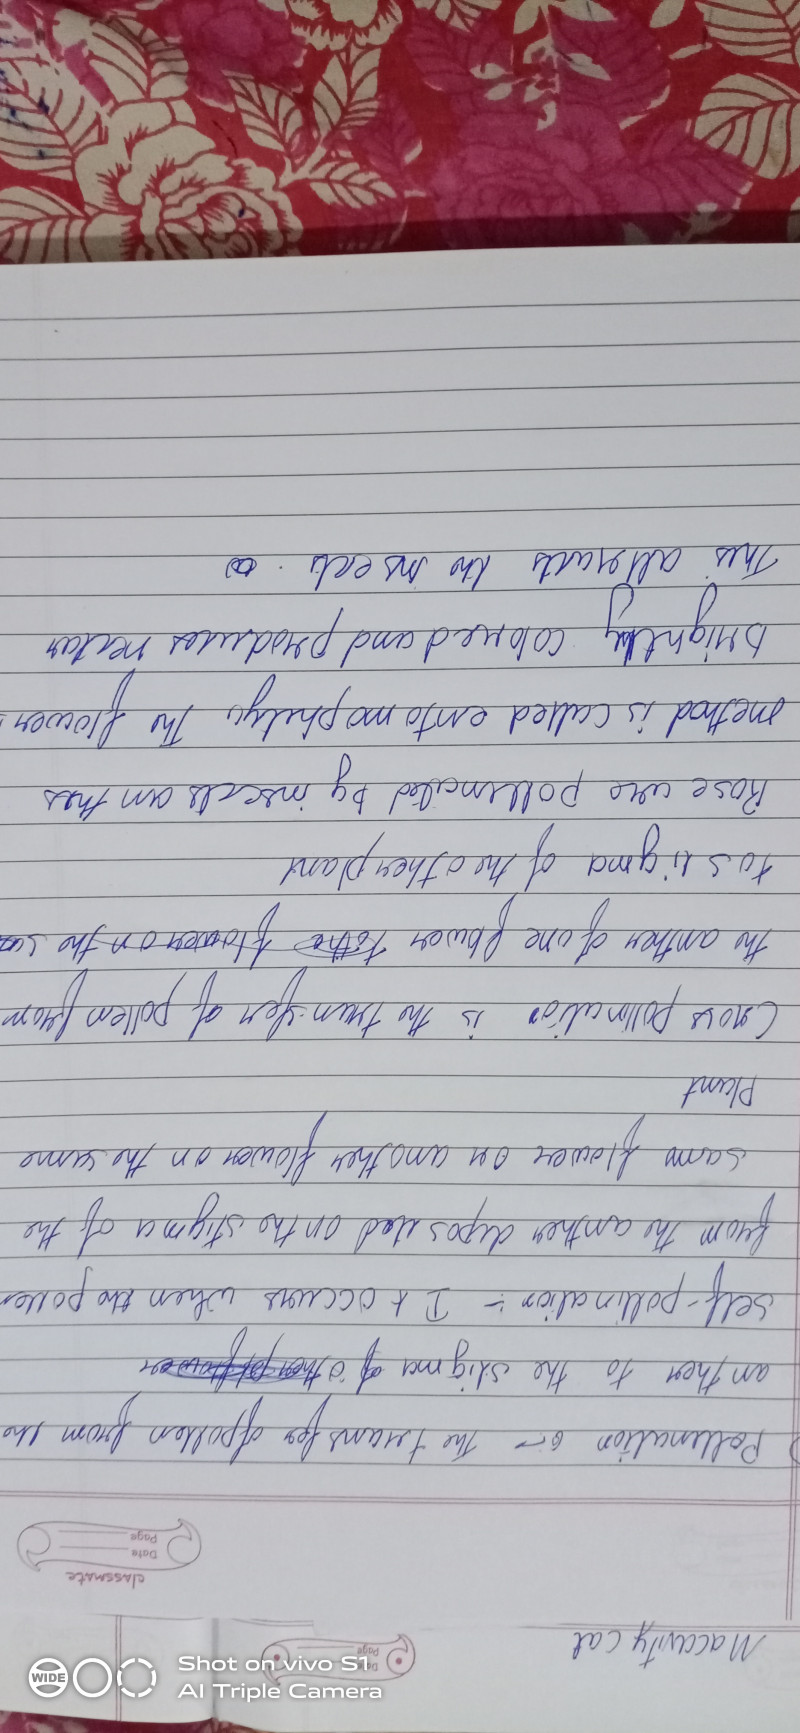 Macavity cat
classmate
Date
Page
Pollination :- The transfer of pollen from the
anther to the stigma of other flower
self-pollination :- It occurs when the pollen
from the anther deposited on the stigma of the
same flower or another flower on the same
Plant
Cross pollination is the transfer of pollen from
the anther of one flower to the flower on the
to stigma of the other plant
Rose are pollinated by insects an this
method is called entomophilys The flower
brightly colored and produces nectar
This attracts the insects.
Date
Page
WIDE
Shot on vivo S1
AI Triple Camera